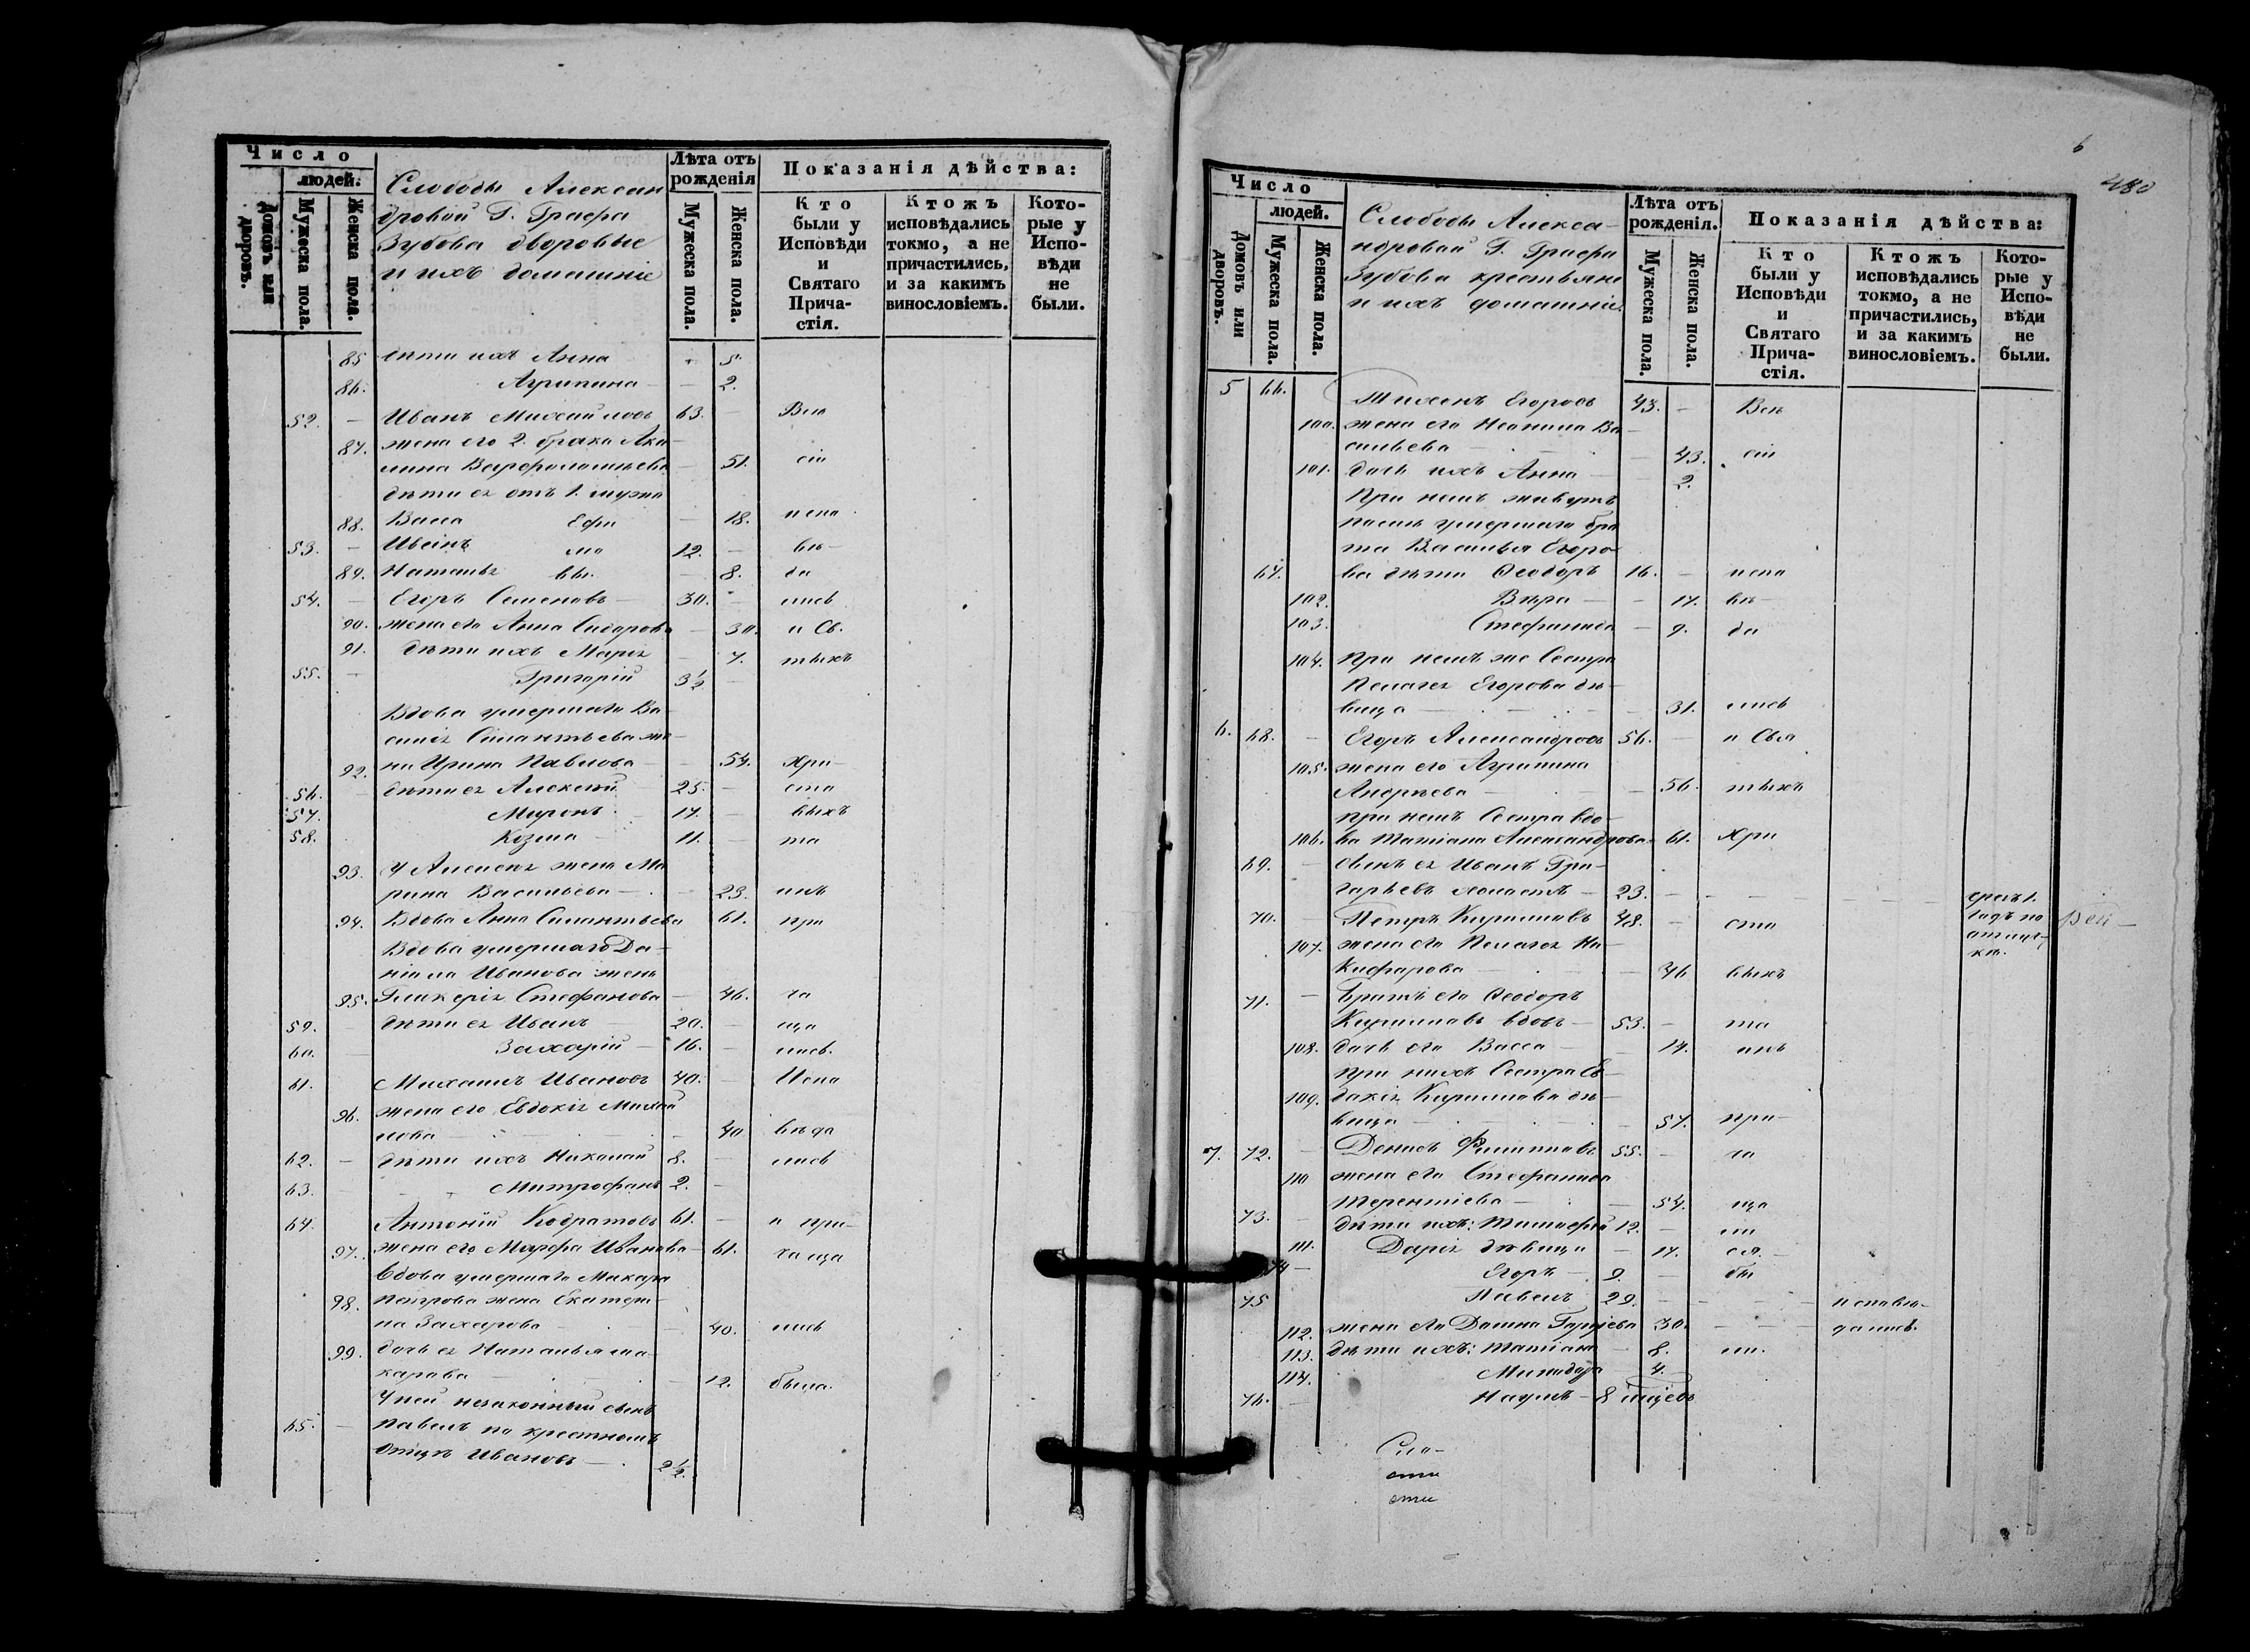 Число
людей.
Домовъ или дворовъ.
Мужеска пола.
Женска пола.
Слободы Алексан
дровой Г. Графа
Зубова дворовые
и ихъ домашніе
Лѣта отъ рожденія
Мужеска пола.
Женска пола.
Показанія дѣйства:
Кто были у Исповѣди и Святаго Прича-стія.
Ктожъ исповѣдались токмо, а не причастились, и за какимъ винословіемъ.
Кото-рые у Испо-вѣди не были.
85 дѣти ихъ Анна 5
86. Агрипина — 2.
52. — Иванъ Михайловъ 63. — Всѣ
87. жена его 2. брака Аки-
лина Варфоломѣева — 51. сіи
дѣти ея отъ 1. мужа
88. Васса Ефи — 18. испо
53. — Ивсінъ мо 12. — вѣ-
89. Наталья вы. — 8. да
54. — Егоръ Семеновъ — 30. — лись
90. жена его Анна Сидорова — 30. и Св.
91. дѣти ихъ Марія — 7. тыхъ
55. — Григорій 3½ —
Вдова умершаго Ва-
силія Силантьева же-
92. на Ирина Павлова — 54. Хри-
56. — дѣти ея Алексѣй 25. — сто
57. Миронъ 17. — выхъ
58. Козма 11. — та
93. У Алексѣя жена Ма
рина Васильева — 23. инъ
94. Вдова Анна Силантьева 61. при
Вдова умершаго Да-
ніила Иванова жена
95. Гликерія Стефанова — 46. ча
59. — дѣти ея Иванъ — 20. — ща
60. — Захарій — 16. — лись.
61. Михаилъ Ивановъ 40. — Испо
96. жена его Евдокія Михай
лова — 40. вѣда
62. — дѣти ихъ Николай 8. — лись
63. — Митрофанъ 2. —
64. Антоній Кодратовъ 61. — и при-
97. жена его Марфа Иванова — 61. ча ща
Вдова умершаго Макара
98. Петрова жена Екатери-
на Захарова — 40. лись
99. дочь ея Наталья ма-
карова — 12. были.
У ней незаконный сынъ
65. — Павелъ по крестномъ
отцѣ Ивановъ — 2½.
6
480
Число
людей.
Домовъ или дворовъ.
Мужеска пола.
Женска пола.
Слободы Алекса-
ндровой Г. Графа
Зубова крестьяне
и ихъ домашніе.
Лѣта отъ рожденія.
Мужеска пола.
Женска пола.
Показанія дѣйства:
Кто были у Исповѣди и Святаго Прича-стія.
Ктожъ исповѣдались токмо, а не причастились, и за какимъ винословіемъ.
Кото-рые у Испо-вѣди не были.
5 66. Тихонъ Егоровъ 43. — Всѣ
100. жена его Неонила Ва-
сильева — 43. сіи
101. дочь ихъ Анна — 2.
При немъ живутъ
послѣ умершаго бра
та Василья Егоро-
67. ва дѣти Ѳеодоръ 16. — испо
102. Вѣра — 17. вѣ-
103. Стефанида — 9. да
104. При немъ же Сестра
Пелагея Егорова дѣ-
вица — 31. лись
6. 68. — Егоръ Александровъ 56. — и Свя
105. жена его Агрипина
Андреева — 56. тыхъ
при немъ Сестра вдо-
106. ва Татіана Александрова 61. Хри
69. — сынъ ея Иванъ Гри-
горьевъ холостъ — 23. —
70. Петръ Кириловъ 48. — сто
107. жена его Пелагея Ни-
кифорова — 46 выхъ
71. — Братъ его Ѳеодоръ
Кириловъ вдовъ — 53. — та
108. дочь его Васса — 14. инъ
При нихъ Сестра Ев-
109. докія Кирилова дѣ-
вица — 57. при-
7. 72. — Денисъ Филиповъ 55. — ча
110 жена его Стефанида
Терентіева — 54. ща
73. — дѣти ихъ: Тимофей 12. — ли
111. Дарія дѣвица — 17. ся.
74 — Егоръ — 9. — бы
75 Павелъ 29. — исповѣ-
112. жена его Домна Гордѣева 30. — дались.
113. дѣти ихъ: Татіана — 8. ли.
114. Минодора — 4.
76. — Наумъ — 8 мцевъ
годъ по
Сло-